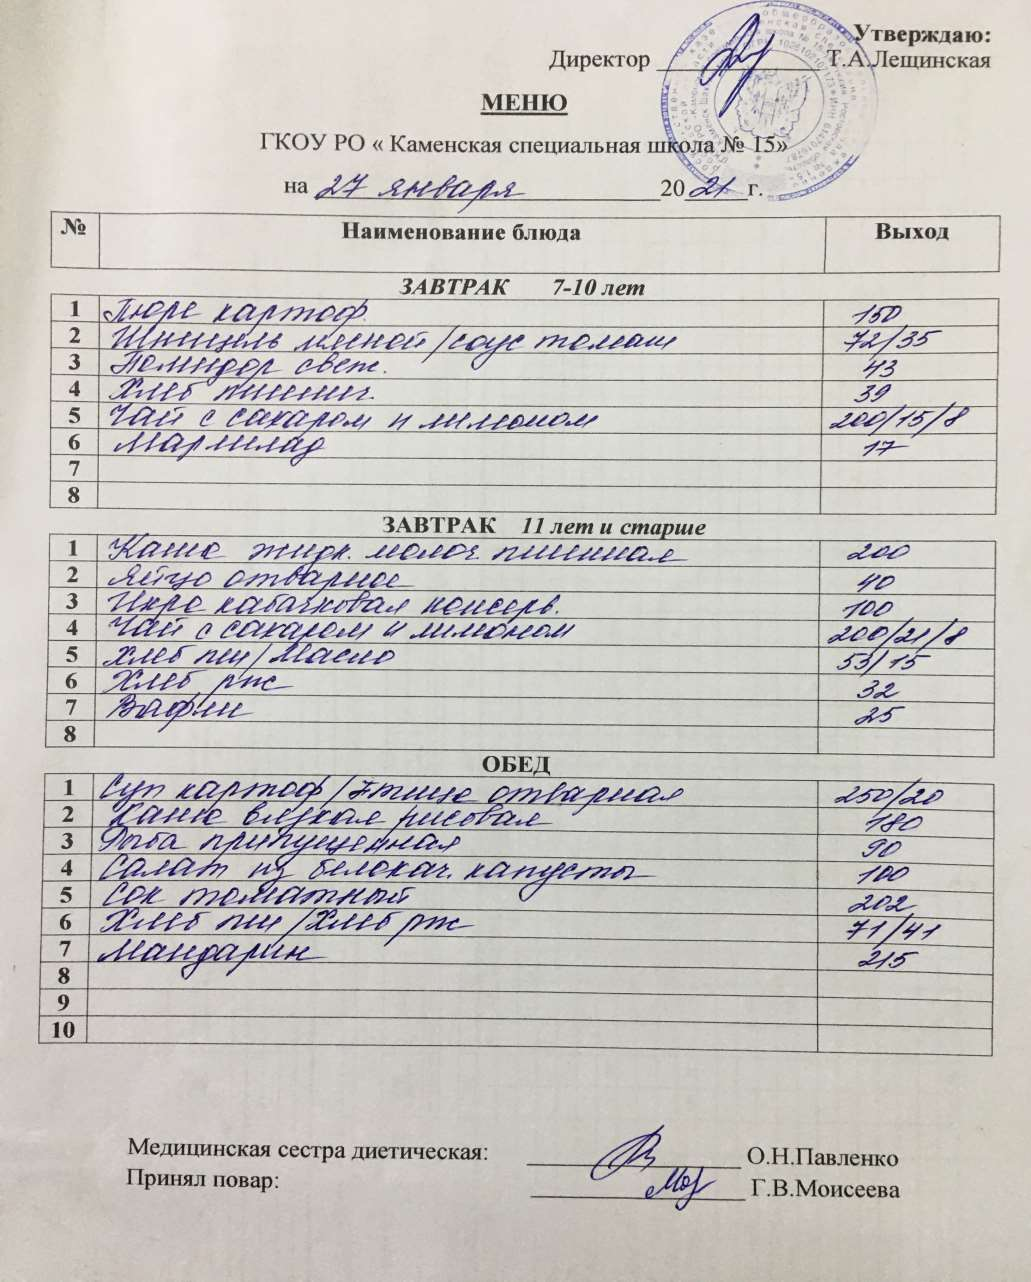 Утверждаю:
Директор Т.А.Лещинская
МЕНЮ
ГКОУ РО « Каменская специальная школа № 15»
на 27 января 2021 г.
№ Наименование блюда Выход
ЗАВТРАК 7-10 лет
1 Пюре картоф. 150
2 Шницель мясной/соус томат 72/35
3 Помидор свеж. 43
4 Хлеб пшенич. 39
5 Чай с сахаром и лимоном 200/15/8
6 Мармелад 17
7
8
ЗАВТРАК 11 лет и старше
1 Каша жидк. молоч. пшенная 200
2 Яйцо отварное 40
3 Икра кабачковая консерв. 100
4 Чай с сахаром и лимоном 200/21/8
5 Хлеб пш/Масло 53/15
6 Хлеб рж 32
7 Вафли 25
8
ОБЕД
1 Суп картоф/Птица отварная 250/20
2 Каша вязкая рисовая 180
3 Рыба припущенная 90
4 Салат из белокач. капусты 100
5 Сок томатный 202
6 Хлеб пш/Хлеб рж 71/41
7 Мандарин 215
8
9
10
Медицинская сестра диетическая: О.Н.Павленко
Принял повар: Г.В.Моисеева